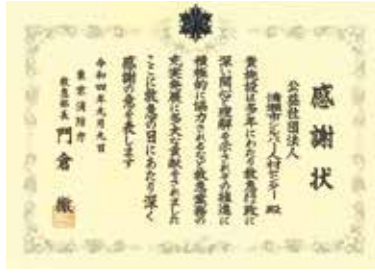 感謝状
公益社団法人
清瀬市シルバー人材センター 殿
貴施設は多年にわたり救急行政に
深い関心と理解を示されその推進に
積極的に協力されるなど救急業務の
充実発展に多大な貢献をされました
ここに救急の日にあたり深く
感謝の意を表します
令和四年九月九日
東京消防庁
救急部長 門倉 徹